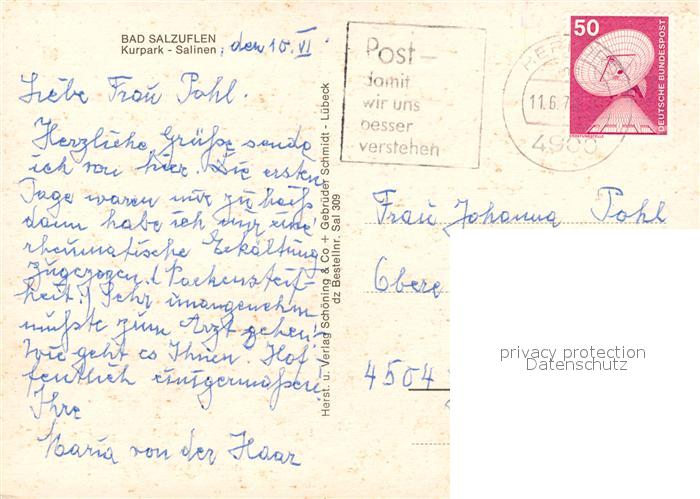 BAD SALZUFLEN
Kurpark - Salinen
, den 10. VI
Liebe Frau Pohl.
Herzliche Grüße sende
ich von hier. Die ersten
Tage waren mir zu heiß
dann habe ich mir eine
rheumatische Erkältung
zugezogen. (Nackensteif-
heit.) Sehr unangenehm
mußte zum Arzt gehen!
Wie geht es Ihnen. Hof-
fentlich einigermaßen.
Ihre
Maria von der Haar
Herst. u. Verlag Schöning & Co + Gebrüder Schmidt - Lübeck
dz Bestellnr. Sal 309
Post -
damit
wir uns
besser
verstehen
11.6.7
4900
50
DEUTSCHE BUNDESPOST
Frau Johanna Pohl
Obere
4504
privacy protection
Datenschutz